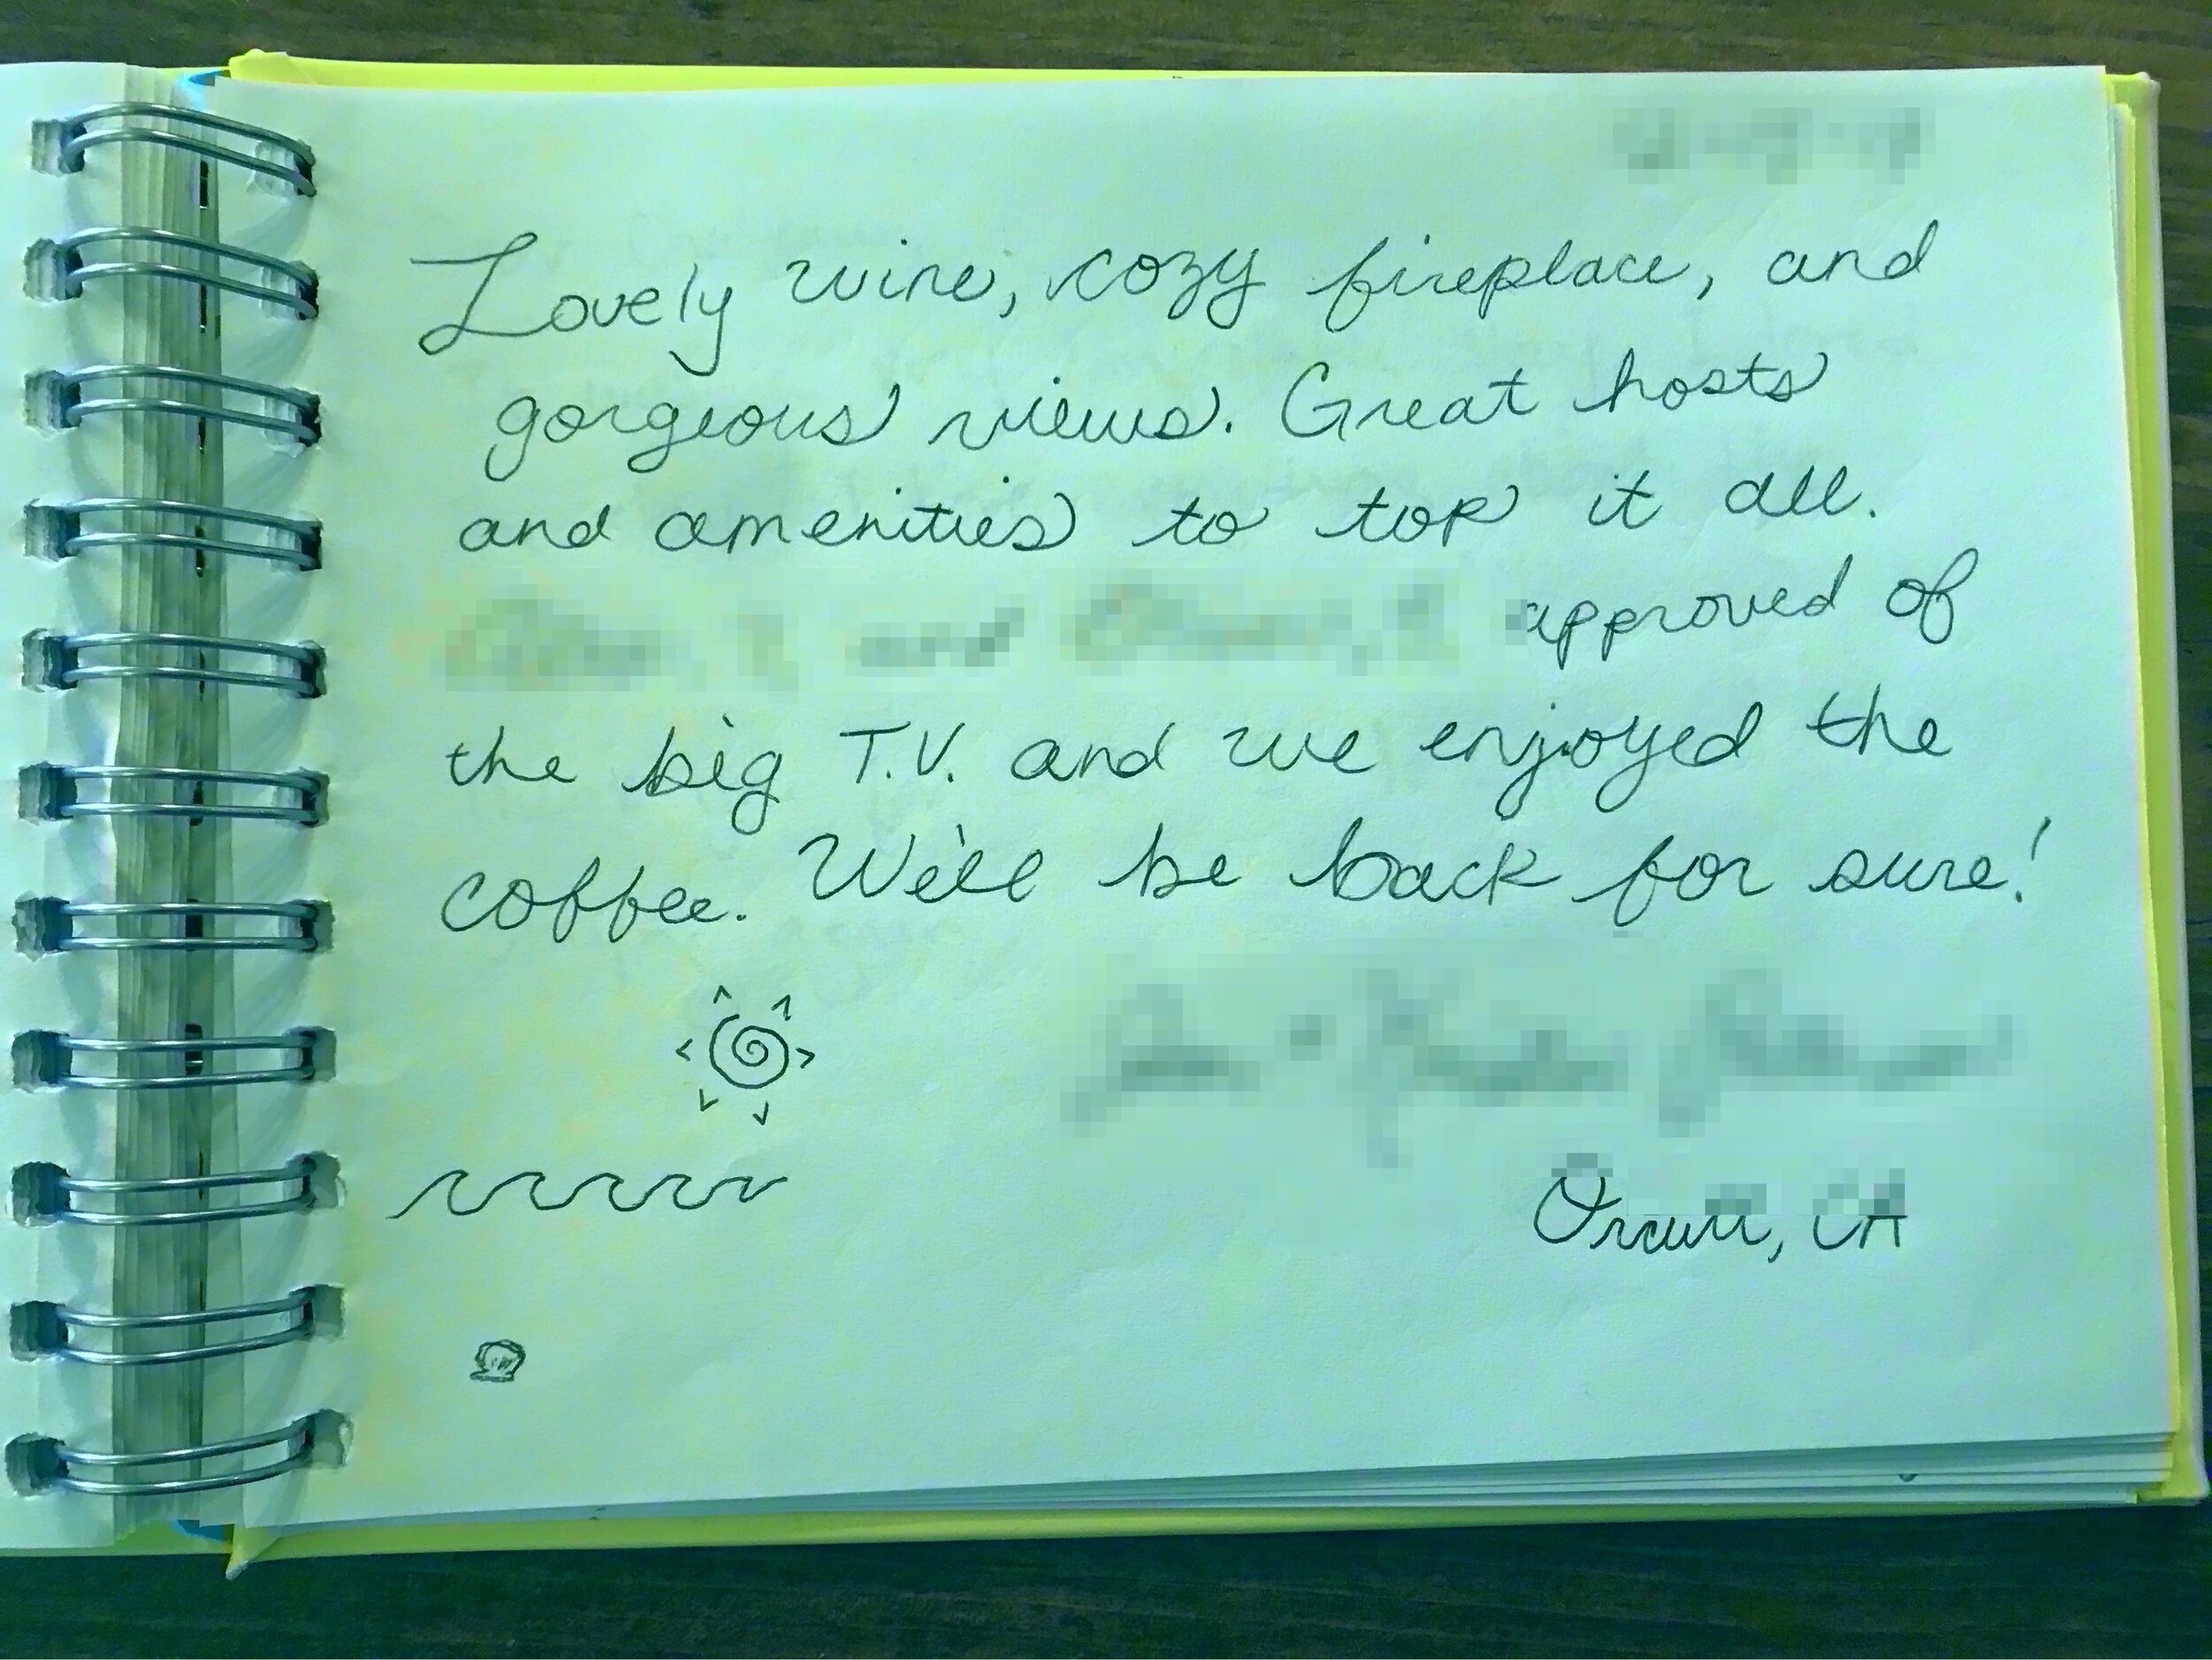 Lovely wine, cozy fireplace, and
gorgeous views. Great hosts
and amenities to top it all.
and approved of
the big T.V. and we enjoyed the
coffee. We'll be back for sure!
Orcutt, CA